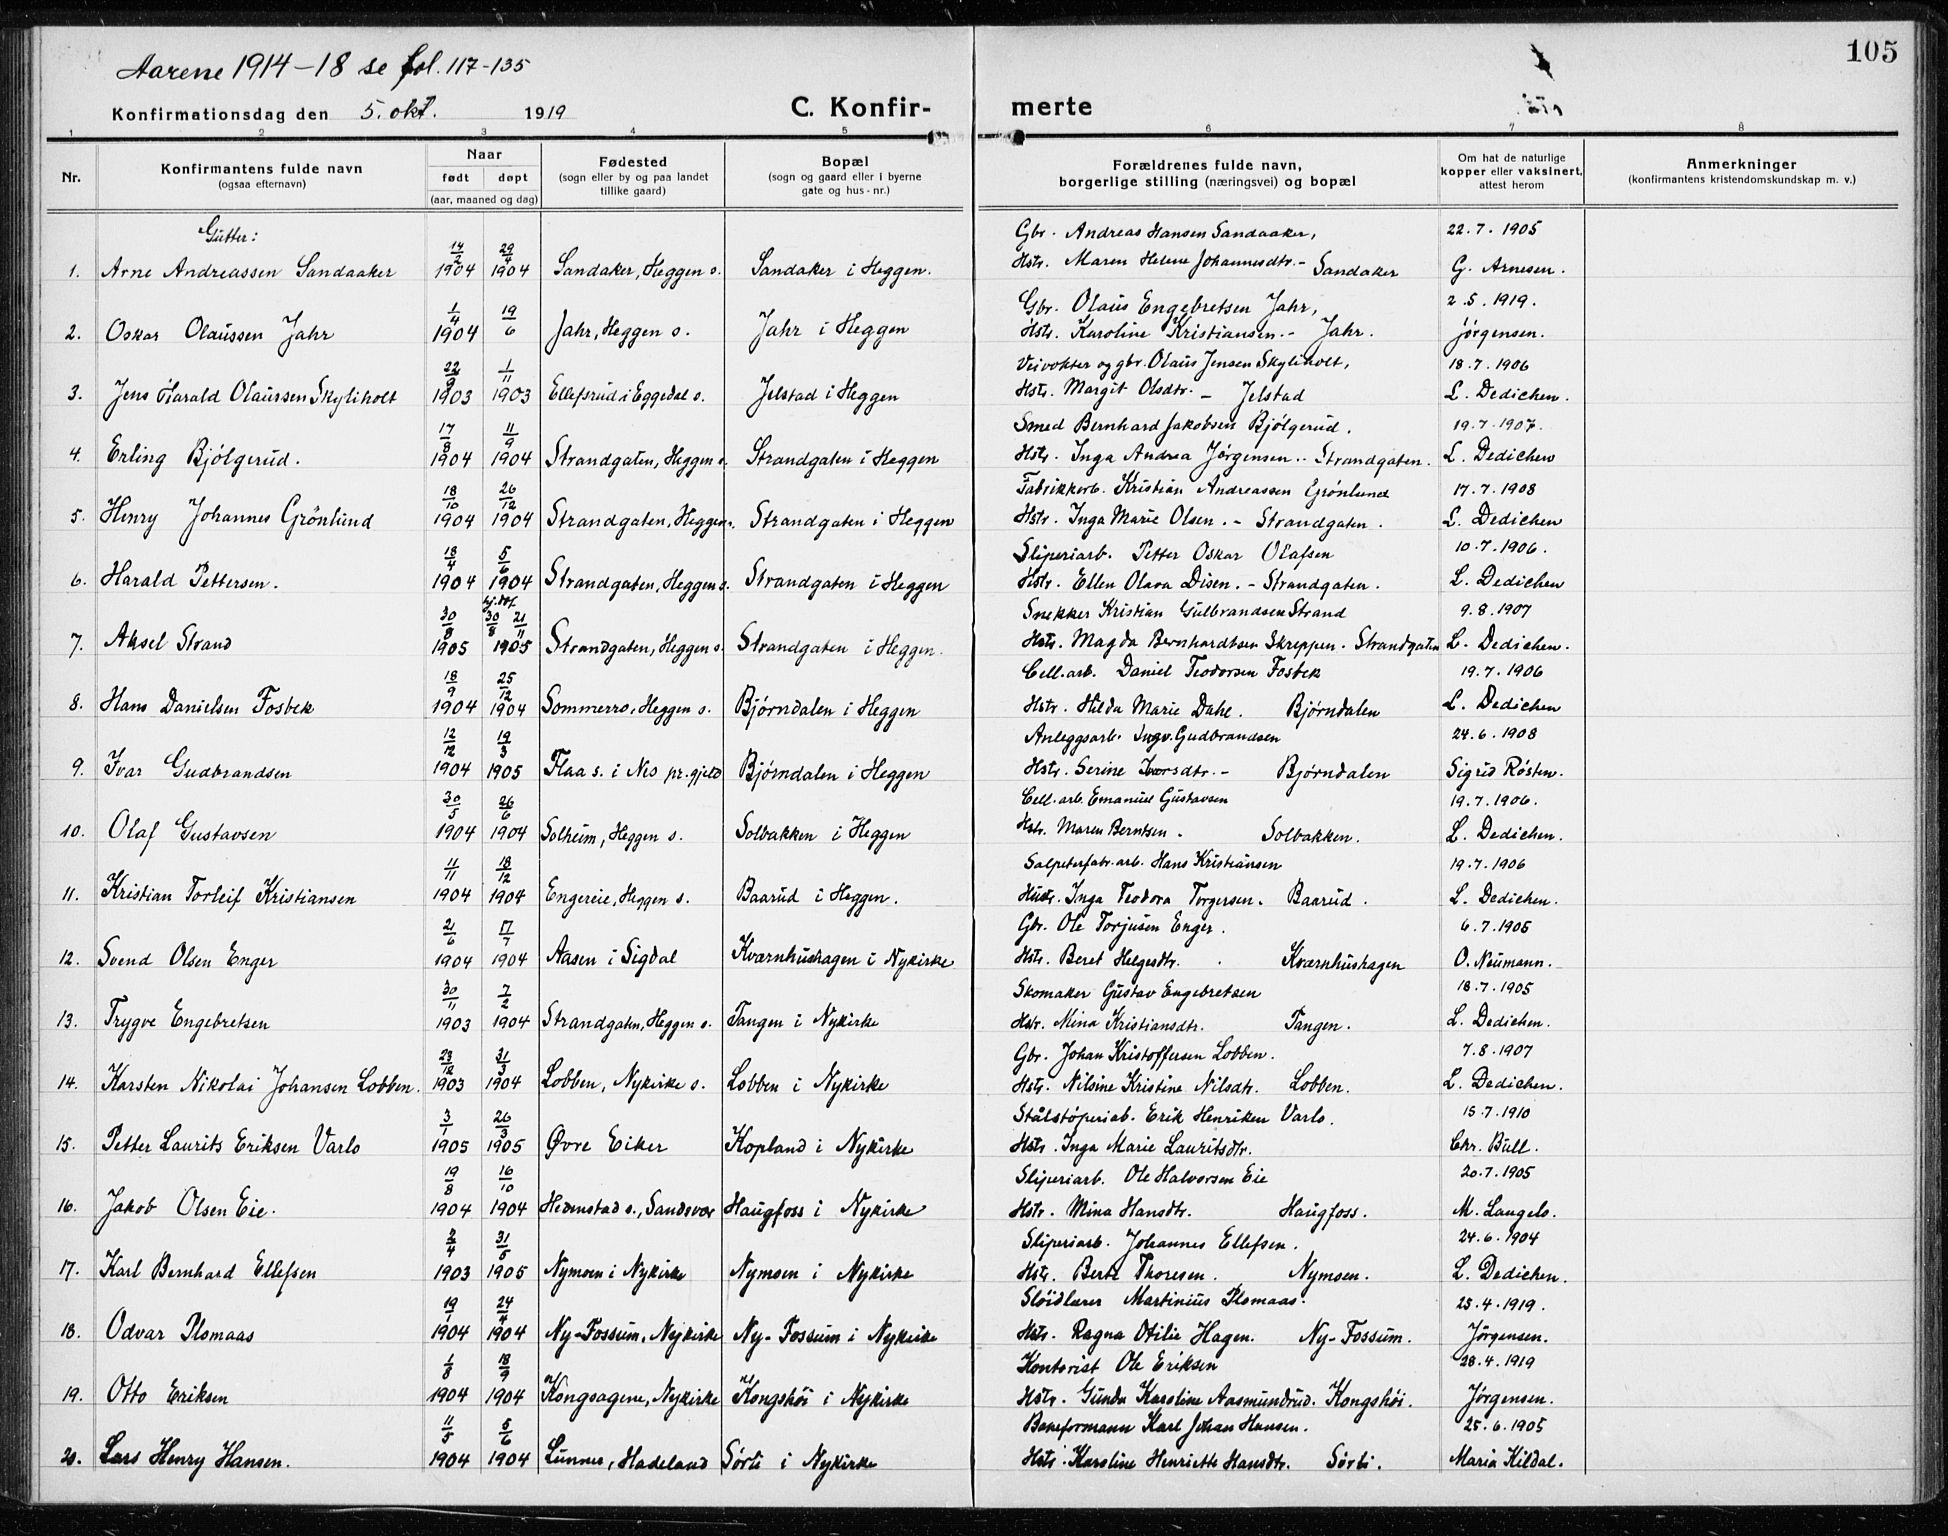 105
Aarene 1914-18 se fol. 117-135
Konfirmationsdag den 5. okt. 1919
C. Konfirmerte
1 2 3 4 5 6 7 8
Nr. Konfirmantens fulde navn (ogsaa efternavn) Naar født døpt (aar, maaned og dag) Fødested (sogn eller by og paa landet tillike gaard) Bopæl (sogn og gaard eller i byerne gate og hus-nr.) Forældrenes fulde navn, borgerlige stilling (næringsvei) og bopæl Om hat de naturlige kopper eller vaksinert, attest herom Anmerkninger (konfirmantens kristendomskundskap m. v.)
Gutter:
14/2 29/4 Gbr. Andreas Hansen Sandaaker, 22.7.1905
1. Arne Andreassen Sandaaker 1904 1904 Sandaker, Heggen s. Sandaker i Heggen. Hstr. Maren Helene Johannesdtr. - Sandaker G. Arnesen.
1/4 19/6 Gbr. Olaus Engebretsen Jahr, 2.5.1919.
2. Oskar Olaussen Jahr 1904 Jahr, Heggen s. Jahr i Heggen Hstr. Karoline Kristiansen. - Jahr. Jørgensen.
22/9 1/11 Veivokter og gbr. Olaus Jensen Skyliholt, 18.7.1906
3. Jens Harald Olaussen Skyliholt 1903 1903 Ellefsrud i Eggedal s. Jelstad i Heggen Hstr. Margit Olsdtr. - Jelstad L. Dedichen.
17/8 11/9 Smed Bernhard Jakobsen Bjølgerud. 19.7.1907.
4. Erling Bjølgerud. 1904 1904 Strandgaten, Heggen s. Strandgaten i Heggen Hstr. Inga Andrea Jørgensen.. Strandgaten. L. Dedichen
18/10 26/12 Fabrikkerb. Kristian Andreassen Grønlund 17.7.1908
5. Henry Johannes Grønlund 1904 1904 Strandgaten, Heggen s. Strandgaten i Heggen Hstr. Inga Marie Olsen. - Strandgaten. L. Dedichen
18/4 5/6 Sliperiarb. Petter Oskar Olafsen 10.7.1906.
6. Harald Pettersen. 1904 1904 Strandgaten, Heggen s. Strandgaten i Heggen Hstr. Ellen Olava Disen. - Strandgaten. L. Dedichen
30/8 hj.døf 30/8 21/11 Snekker Kristian Gulbrandsen Strand 9.8.1907
7. Aksel Strand 1905 1905 Strandgaten, Heggen s. Strandgaten i Heggen. Hstr. Magda Bernhardtsen Skreppen. Strandgaten L. Dedichen.
18/9 25/12 Cell.arb. Daniel Teodorsen Fosbek 19.7.1906
8. Hans Danielsen Fosbek 1904 1904 Sommerro, Heggen s. Bjørndalen i Heggen Hstr. Hilda Marie Dahl. Bjørndalen L. Dedichen
12/12 19/3 Anleggsarb. Ingv. Gudbrandsen 24.6.1908
9. Ivar Gudbrandsen 1904 1905 Flaa s. i Nes pr.gjeld Bjørndalen i Heggen Hstr. Serine Iversdtr. - Bjørndalen Sigrid Røsten.
30/5 26/6 Cell.arb. Emanuel Gustavsen 19.7.1906.
10. Olaf Gustavsen 1904 1904 Solheim, Heggen s. Solbakken i Heggen Hstr. Maren Berntsen. Solbakken. L. Dedichen.
11/11 18/12 Salpeterfabr.arb. Hans Kristiansen 19.7.1906
11. Kristian Torleif Kristiansen 1904 1904 Engereie, Heggen s. Baarud i Heggen. Hustr. Inga Teodora Torgersen. Baarud. L. Dedichen.
21/6 17/7 Gbr. Ole Torjusen Enger. 6.7.1905
12. Svend Olsen Enger 1904 1904 Aasen i Sigdal Kværnhushagen i Nykirke Hstr. Beret Helgesdtr. Kværnhushagen O. Neumann.
30/11 7/2 Skomaker Gustav Engebretsen 18.7.1905
13. Trygve Engebretsen 1903 1904 Strandgaten, Heggen s. Tangen i Nykirke Hstr. Mina Kristiansdtr. Tangen. L. Dedichen.
23/12 31/3 Gbr. Johan Kristoffersen Lobben. 7.8.1907
14. Karsten Nikolai Johansen Lobben. 1903 1904 Lobben, Nykirke s. Lobben i Nykirke Hstr. Nilsine Kristine Nilsdtr. Lobben. L. Dedichen.
3/1 26/3 Stålstøperiab. Erik Henriken Varlo. 15.7.1910
15. Petter Laurits Eriksen Varlo 1905 1905 Øvre Eiker Kopland i Nykirke Hstr. Inga Marie Lauritsdtr. Chr. Bull.
19/8 16/10 Sliperiarb. Ole Halvorsen Eie 20.7.1905
16. Jakob Olsen Eie. 1904 1904 Hedenstad s., Sandsvær Haugfoss i Nykirke Hstr. Mina Hansdtr. Haugfoss. M. Langelo.
2/4 31/5 Sliperiarb. Johannes Ellefsen. 24.6.1904
17. Karl Bernhard Ellefsen 1903 1905 Nymoen i Nykirke Nymoen i Nykirke Hstr. Berte Thoresen. Nymoen. L. Dedichen.
19/1 24/4 Sløidlærer Martinius Plomaas. 25.4.1919.
18. Odvar Plomaas 1904 1904 Ny-Fossum, Nykirke Ny-Fossum i Nykirke Hstr. Ragna Otilie Hagen. Ny-Fossum. Jørgensen.
1/8 18/9 Kontorist Ole Eriksen 28.4.1919
19. Otto Eriksen 1904 1904 Kongsagene, Nykirke Kongshøi i Nykirke Hstr. Gunda Karoline Aasmundrud. Kongshøi. Jørgensen.
11/5 5/6 Baneformann Karl Johan Hansen. 25.6.1905
20. Lars Henry Hansen. 1904 1904 Lunner, Hadeland Sørbi i Nykirke Hstr. Karoline Henriette Hansdtr. Sørbi. Maria Kildal.